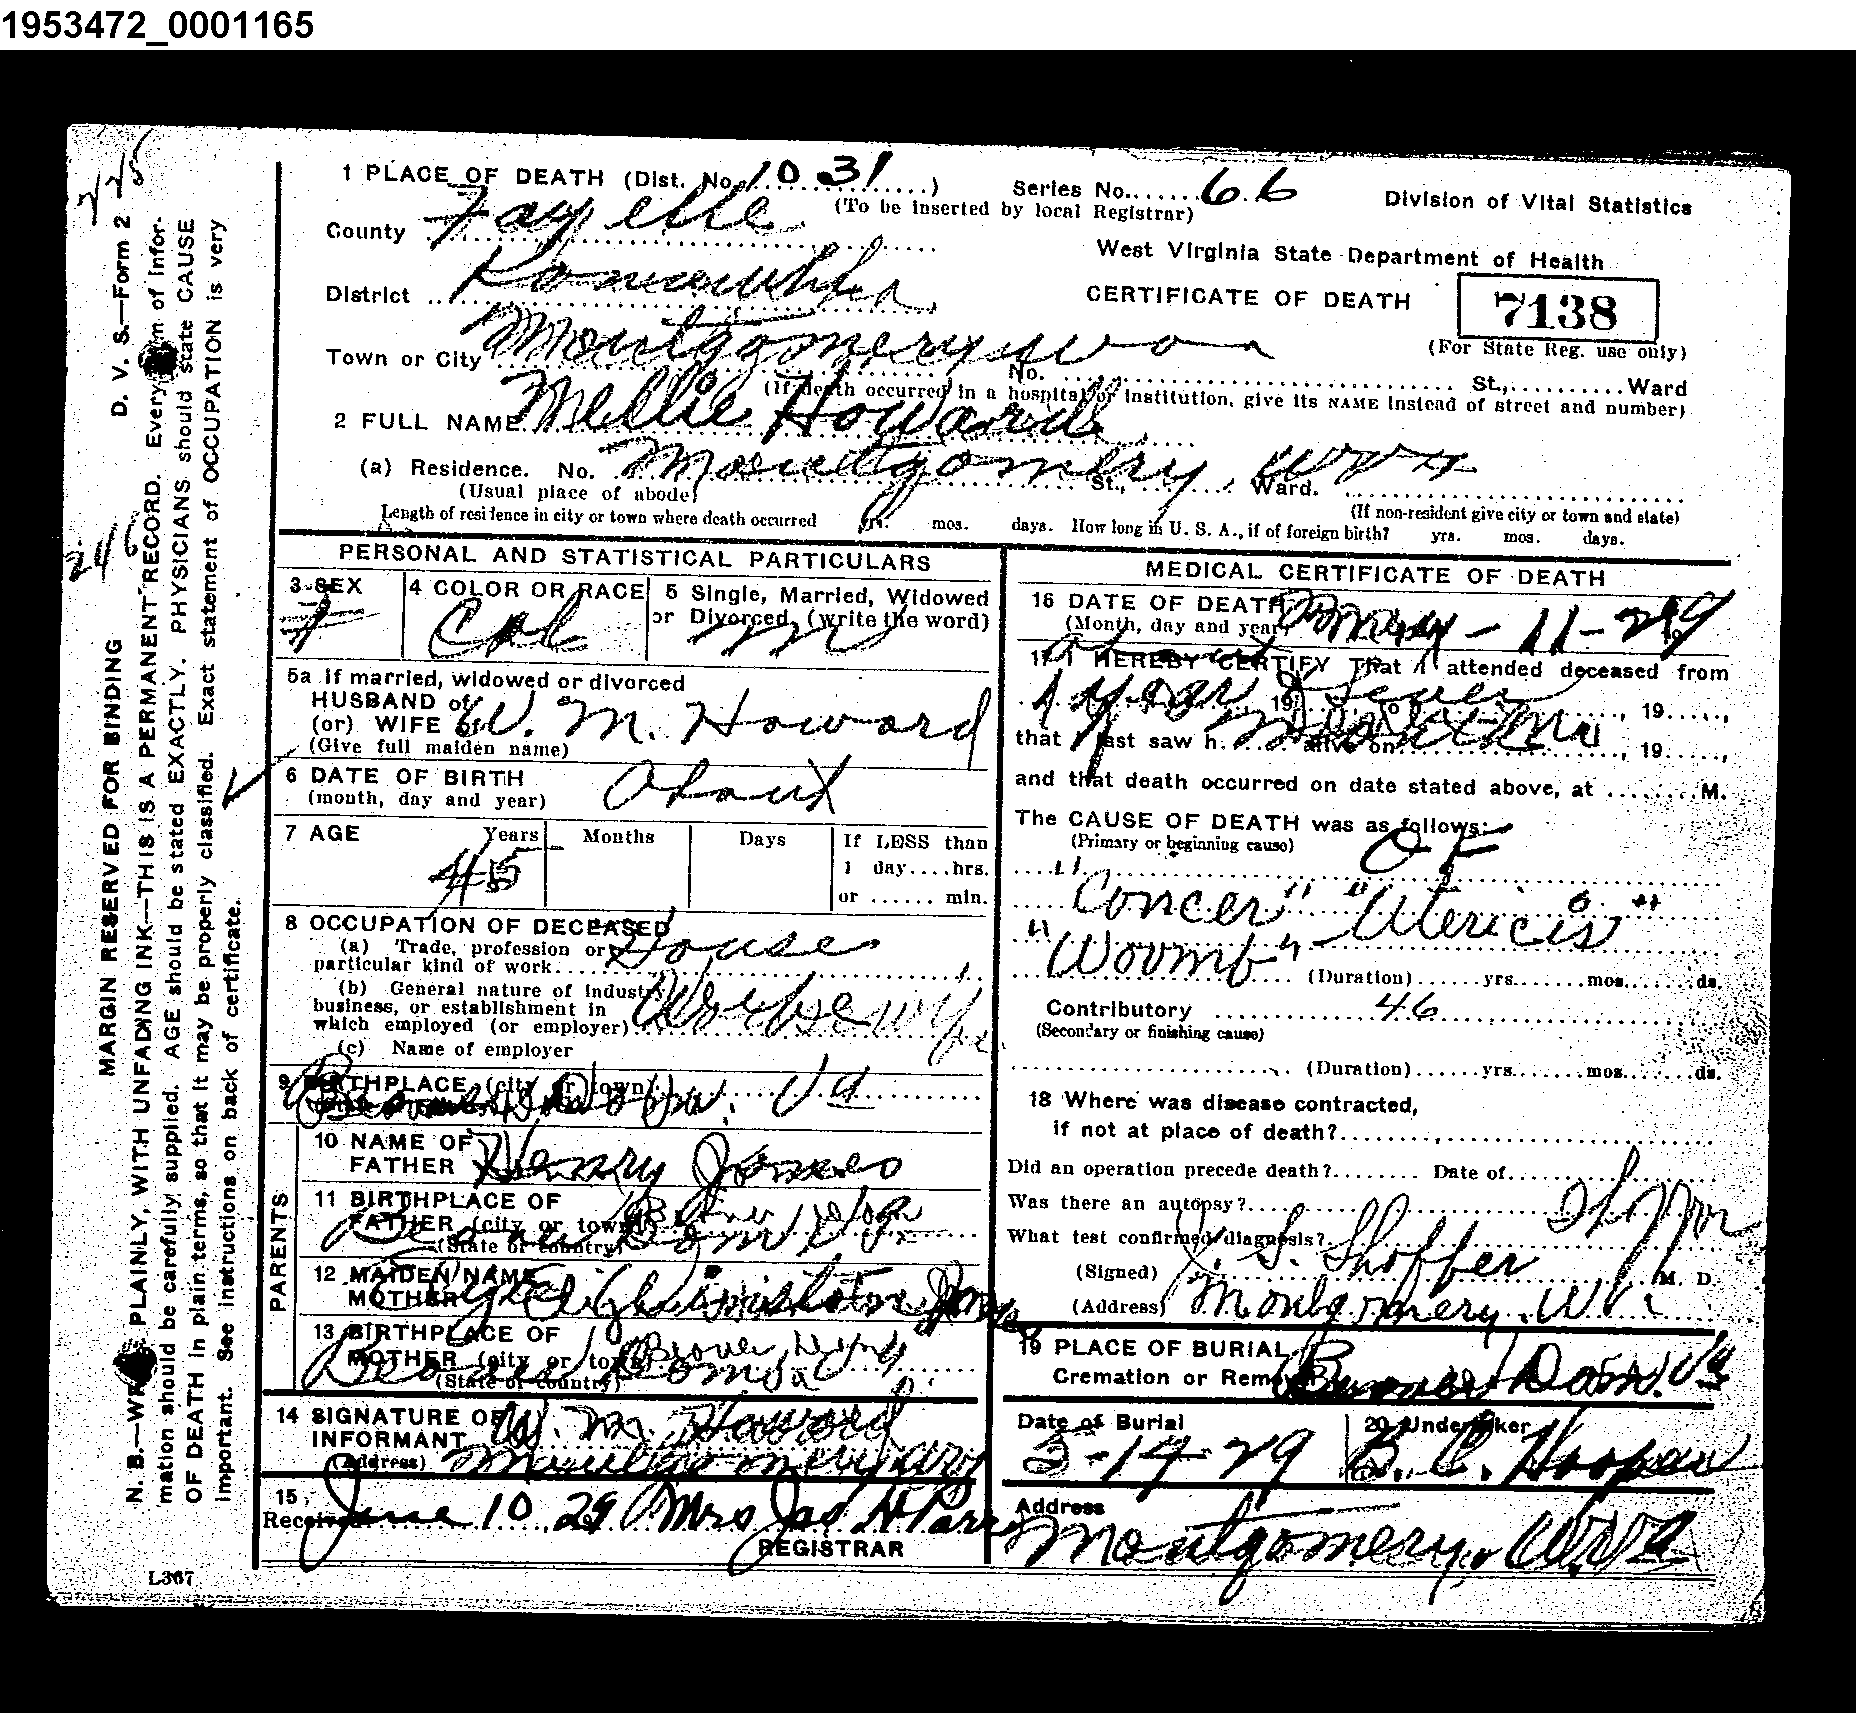 1953472_0001165
1 PLACE OF DEATH (Dist. No. 1031)
Series No. 66
(To be inserted by local Registrar)
Division of Vital Statistics
County Fayette
West Virginia State Department of Health
District
CERTIFICATE OF DEATH
7138
(For State Reg. use only)
Town or City Montgomery
No. St., Ward
(If death occurred in a hospital or institution, give its NAME instead of street and number)
2 FULL NAME Mellie Howard
(a) Residence. No. Montgomery, W Va St., Ward.
(Usual place of abode)
(If non-resident give city or town and state)
Length of residence in city or town where death occurred yrs. mos. days. How long in U. S. A., if of foreign birth? yrs. mos. days.
PERSONAL AND STATISTICAL PARTICULARS
3 SEX
F
4 COLOR OR RACE
Col
5 Single, Married, Widowed
or Divorced, (write the word)
m
5a If married, widowed or divorced
HUSBAND of
(or) WIFE of W. M. Howard
(Give full maiden name)
6 DATE OF BIRTH
(month, day and year)
About
7 AGE
Years
Months
Days
If LESS than
1 day....hrs.
or ...... min.
45
8 OCCUPATION OF DECEASED
(a) Trade, profession or
particular kind of work House
(b) General nature of industry,
business, or establishment in
which employed (or employer)
(c) Name of employer
9 BIRTHPLACE (city or town)
Va
PARENTS
10 NAME OF
FATHER Henry James
11 BIRTHPLACE OF
FATHER (city or town)
(State or country)
12 MAIDEN NAME
MOTHER
13 BIRTHPLACE OF
MOTHER (city or town)
(State or country)
14 SIGNATURE OF
INFORMANT W. M. Howard
(Address) Montgomery
15
Received June 10 29 Mrs Jas H Parry
REGISTRAR
MEDICAL CERTIFICATE OF DEATH
16 DATE OF DEATH
(Month, day and year)
May - 11 - 29
17 I HEREBY CERTIFY That I attended deceased from
about
1 year
19
to
, 19.....,
that I last saw h alive on , 19.....,
and that death occurred on date stated above, at ........M.
The CAUSE OF DEATH was as follows:
(Primary or beginning cause)
OF
"Concer" "Utericis"
"Woomb"
(Duration)......yrs.......mos.......ds.
Contributory 46
(Secondary or finishing cause)
(Duration)......yrs.......mos.......ds.
18 Where was disease contracted,
if not at place of death?
Did an operation precede death?........ Date of
Was there an autopsy?
What test confirmed diagnosis?
(Signed) S. Shoffer M. D.
(Address) Montgomery. W
19 PLACE OF BURIAL
Cremation or Removal
Va
Date of Burial
5-14-29
20 Undertaker
B. C. Hooper
Address
Montgomery, W Va
MARGIN RESERVED FOR BINDING
D. V. S.—Form 2
N. B.—WRITE PLAINLY, WITH UNFADING INK—THIS IS A PERMANENT RECORD. Every item of infor-
mation should be carefully supplied. AGE should be stated EXACTLY. PHYSICIANS should state CAUSE
OF DEATH in plain terms, so that it may be properly classified. Exact statement of OCCUPATION is very
important. See instructions on back of certificate.
L367